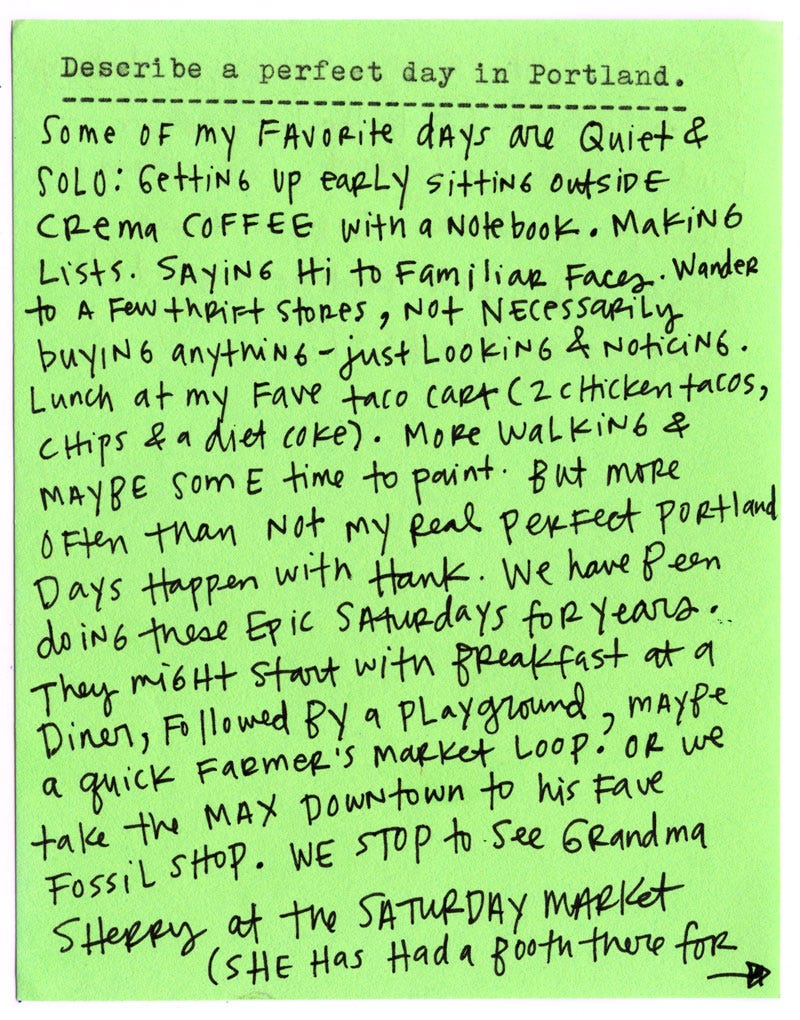 Describe a perfect day in Portland.
Some of my favorite days are quiet &
solo: getting up early sitting outside
Crema Coffee with a notebook. Making
lists. Saying hi to familiar faces. Wander
to a few thrift stores, not necessarily
buying anything - just looking & noticing.
Lunch at my fave taco cart (2 chicken tacos,
chips & a diet coke). More walking &
maybe some time to paint. But more
often than not my real perfect Portland
days happen with Hank. We have been
doing these epic Saturdays for years.
They might start with breakfast at a
diner, followed by a playground, maybe
a quick farmer's market loop. Or we
take the MAX downtown to his fave
fossil shop. We stop to see Grandma
Sherry at the Saturday Market
(she has had a booth there for
→